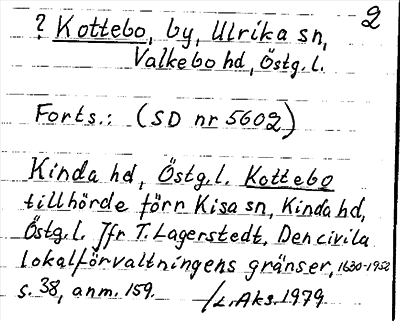 2
? Kottebo, by, Ulrika sn,
Valkebo hd, Östg. l.
Forts.: (SD nr 5602)
Kinda hd, Östg. l. Kottebo
tillhörde förr Kisa sn, Kinda hd,
Östg. l. Jfr T. Lagerstedt, Den civila
lokalförvaltningens gränser, 1630-1952
s. 38, anm. 159. /L. Aks. 1979